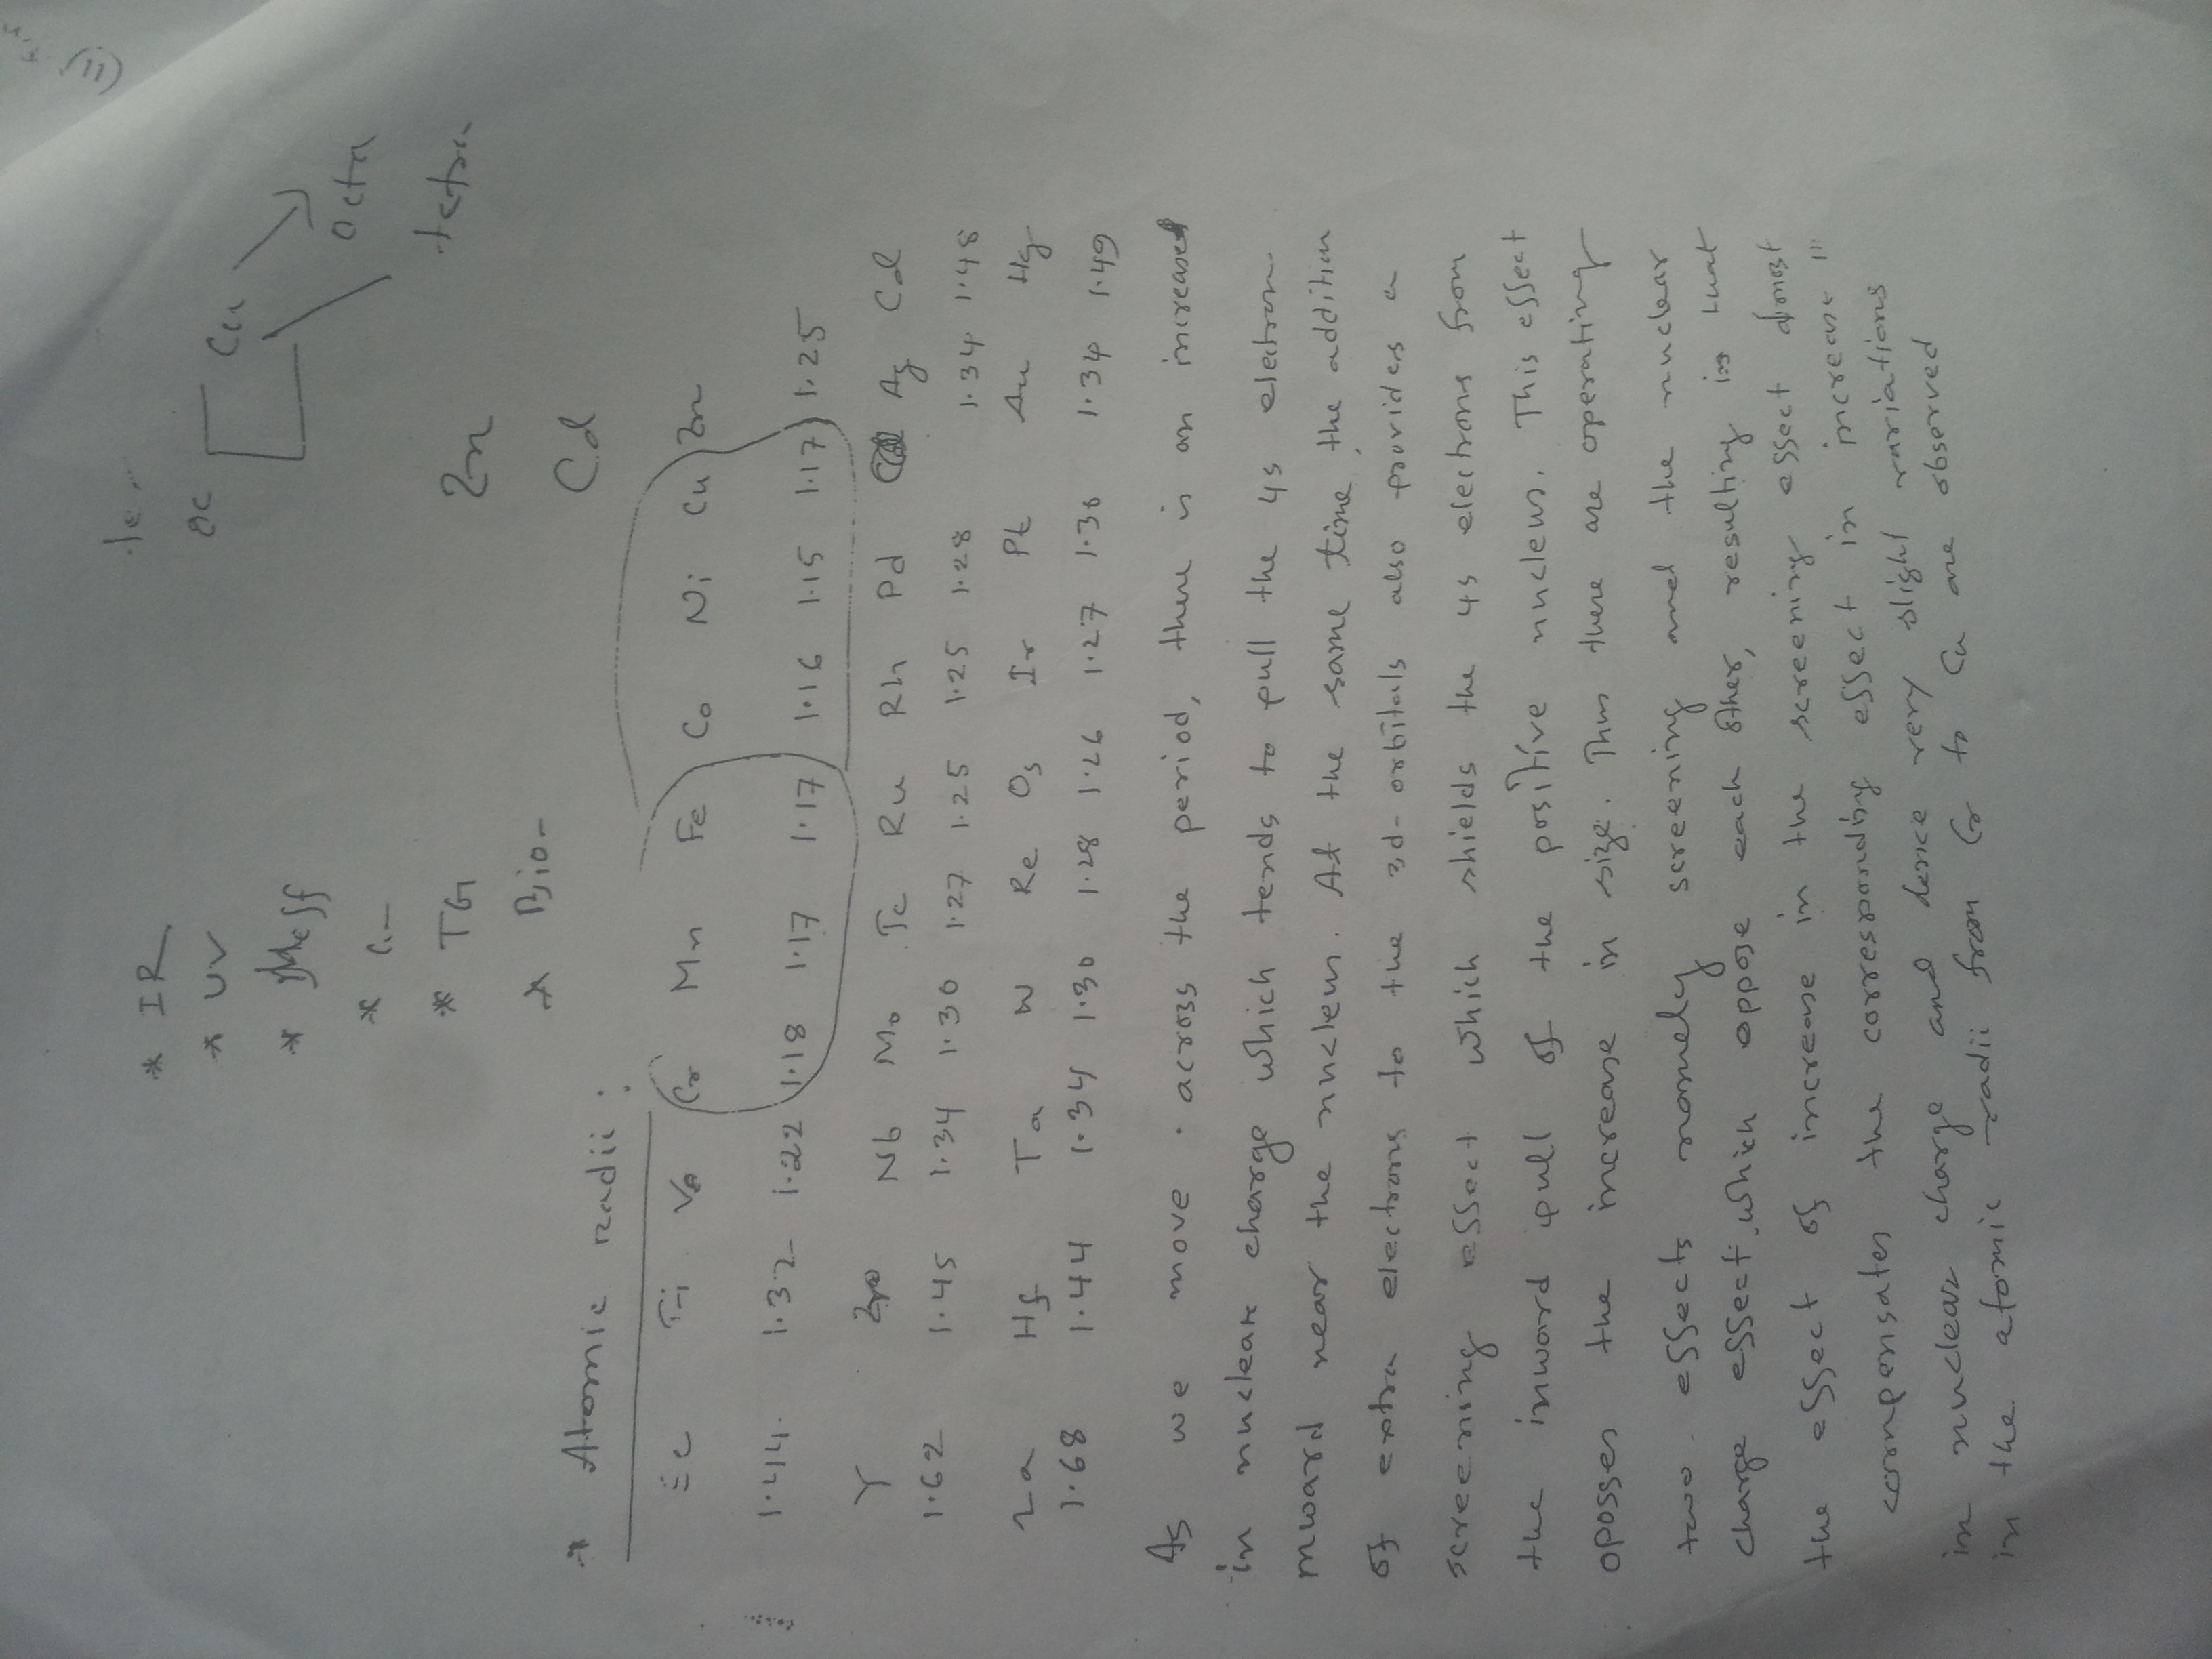 * IR
* UV
* μeff
* TG
* Bio-
Cu
Octa
tetra
Zn
Cd
* Atomic radii :
Sc Ti V Cr Mn Fe Co Ni Cu Zn
1.44. 1.32 1.22 1.18 1.17 1.17 1.16 1.15 1.17 1.25
Y Zr Nb Mo Tc Ru Rh Pd Ag Cd
1.62 1.45 1.34 1.30 1.27 1.25 1.25 1.28 1.34 1.48
La Hf Ta W Re Os Ir Pt Au Hg
1.68 1.44 1.34 1.30 1.28 1.26 1.27 1.30 1.34 1.49
As we move across the period, there is an increase
in nuclear charge which tends to pull the 4s electron
inward near the nucleus. At the same time, the addition
of extra electrons to the 3d-orbitals also provides a
screening effect which shields the 4s electrons from
the inward pull of the positive nucleus. This effect
oposses the increase in size. Thus there are operating
two effects namely screening and the nuclear
charge effect, which oppose each other, resulting is that
the effect of increase in the screening effect almost
compensates the corresponding effect in increase
in nuclear charge and hence very slight variations
in the atomic radii from Cr to Cu are observed